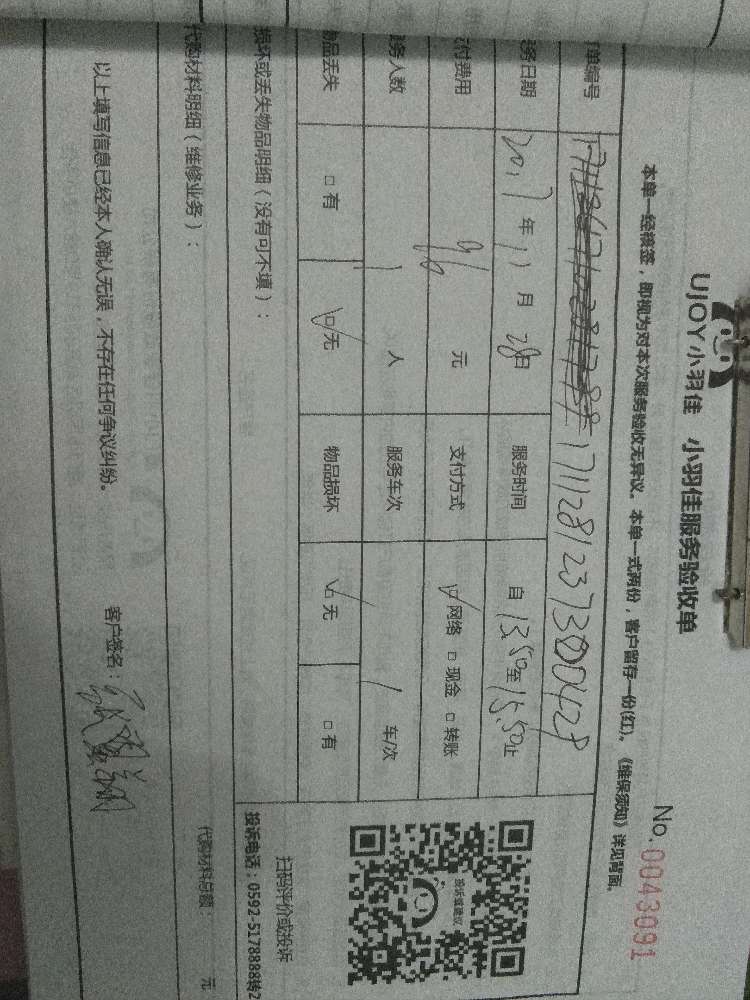 UJOY小羽佳 小羽佳服务验收单
No. 0043091
本单一经核签，即视为对本次服务验收无异议。本单一式两份，客户留存一份(红)。《维保须知》详见背面。
单编号 1711281237300428
务日期 2017年11月28日 服务时间 自13:50至15:50止
付费用 96元 支付方式 ☑网络 □现金 □转账
务人数 1人 服务车次 1车/次
物品丢失 □有 ☑无 物品损坏 ☑无 □有
损坏或丢失物品明细（没有可不填）：
代购材料明细（维修业务）：
代购材料总额： 元
以上填写信息已经本人确认无误，不存在任何争议纠纷。 客户签名：
投诉或建议
扫码评价或投诉
投诉电话：0592-5178888转2